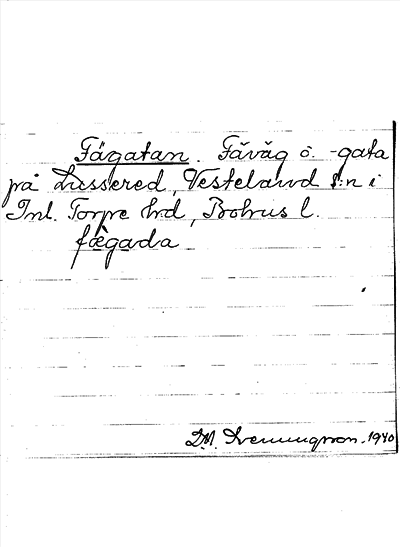 Fägatan. Fäväg o. -gata
på Lussered, Vesteland s:n i
Inl. Torpe hrd, Bohus l.
fægada
1940